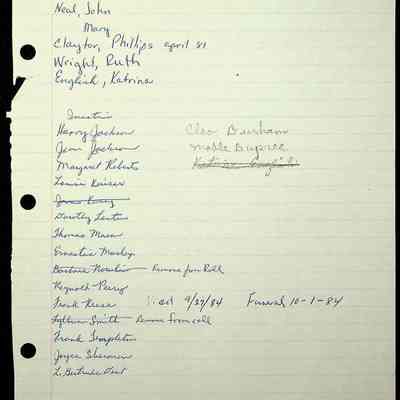 Neal, John
Mary
Clayton, Phillips april 81
Wright, Ruth
English, Katrina
Inactive
Harry Jackson
Cleo Dunham
Jean Jackson
Mable Dupree
Margaret Roberts
Katrina English
Louise Kaiser
Dorothy Lester
Thomas Mason
Ernestine Mosley
Barbara Remove from Roll
Reynold Perry
Frank Reese Died 9/27/84 Funeral 10-1-84
Smith Remove from roll
Frank Templeton
Joyce Sherman
L. Gertrude